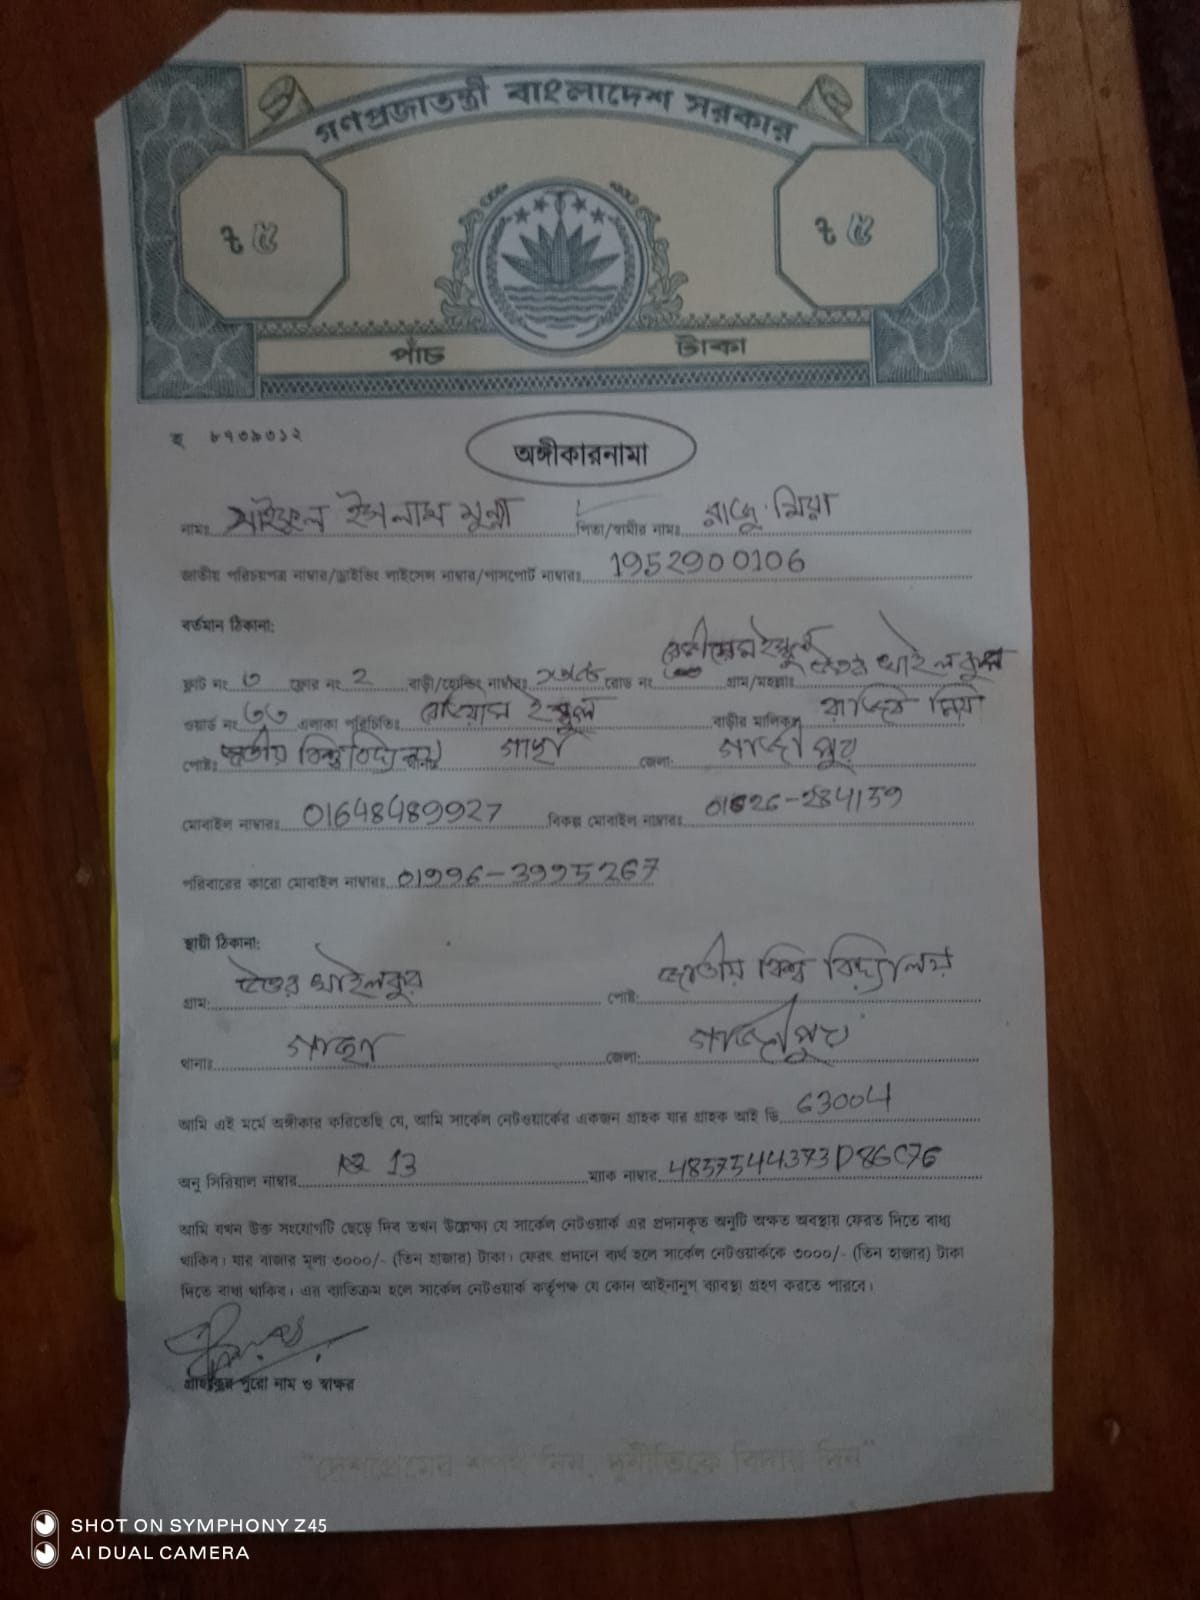 গণপ্রজাতন্ত্রী বাংলাদেশ সরকার
৳ ৫ ৳ ৫
পাঁচ টাকা
হ ৮৭৩৯৩১২
অঙ্গীকারনামা
নামঃ সাইফুল ইসলাম মুন্না পিতা/স্বামীর নামঃ রাজু মিয়া
জাতীয় পরিচয়পত্র নাম্বার/ড্রাইভিং লাইসেন্স নাম্বার/পাসপোর্ট নাম্বারঃ 1952900106
বর্তমান ঠিকানা:
ফ্লাট নং ৩ ফ্লোর নং 2 বাড়ী/হোল্ডিং নাম্বারঃ রোড নং গ্রাম/মহল্লাঃ উত্তর খাইলকুর
ওয়ার্ড নং ৩৩ এলাকা পরিচিতিঃ ইস্কুল বাড়ীর মালিকঃ মিয়া
পোষ্ট: জাতীয় বিশ্ববিদ্যালয় গাছা জেলা: গাজীপুর
মোবাইল নাম্বারঃ 01648489927 বিকল্প মোবাইল নাম্বারঃ
পরিবারের কারো মোবাইল নাম্বারঃ 01996-3995267
স্থায়ী ঠিকানা:
গ্রাম: উত্তর খাইলকুর পোষ্ট: জাতীয় বিশ্ব বিদ্যালয়
থানাঃ গাছা জেলা: গাজীপুর
আমি এই মর্মে অঙ্গীকার করিতেছি যে, আমি সার্কেল নেটওয়ার্কের একজন গ্রাহক যার গ্রাহক আই ডি 63004
অনু সিরিয়াল নাম্বার 13 ম্যাক নাম্বার 4857544373D86C76
আমি যখন উক্ত সংযোগটি ছেড়ে দিব তখন উল্লেক্ষ্য যে সার্কেল নেটওয়ার্ক এর প্রদানকৃত অনুটি অক্ষত অবস্থায় ফেরত দিতে বাধ্য
থাকিব। যার বাজার মূল্য ৩০০০/- (তিন হাজার) টাকা। ফেরৎ প্রদানে ব্যর্থ হলে সার্কেল নেটওয়ার্ককে ৩০০০/- (তিন হাজার) টাকা
দিতে বাধ্য থাকিব। এর ব্যাতিক্রম হলে সার্কেল নেটওয়ার্ক কর্তৃপক্ষ যে কোন আইনানুগ ব্যাবস্থা গ্রহণ করতে পারবে।
গ্রাহকের পুরো নাম ও স্বাক্ষর
"দেশপ্রেমের শপথ নিন, দুর্নীতিকে বিদায় দিন"
SHOT ON SYMPHONY Z45
AI DUAL CAMERA